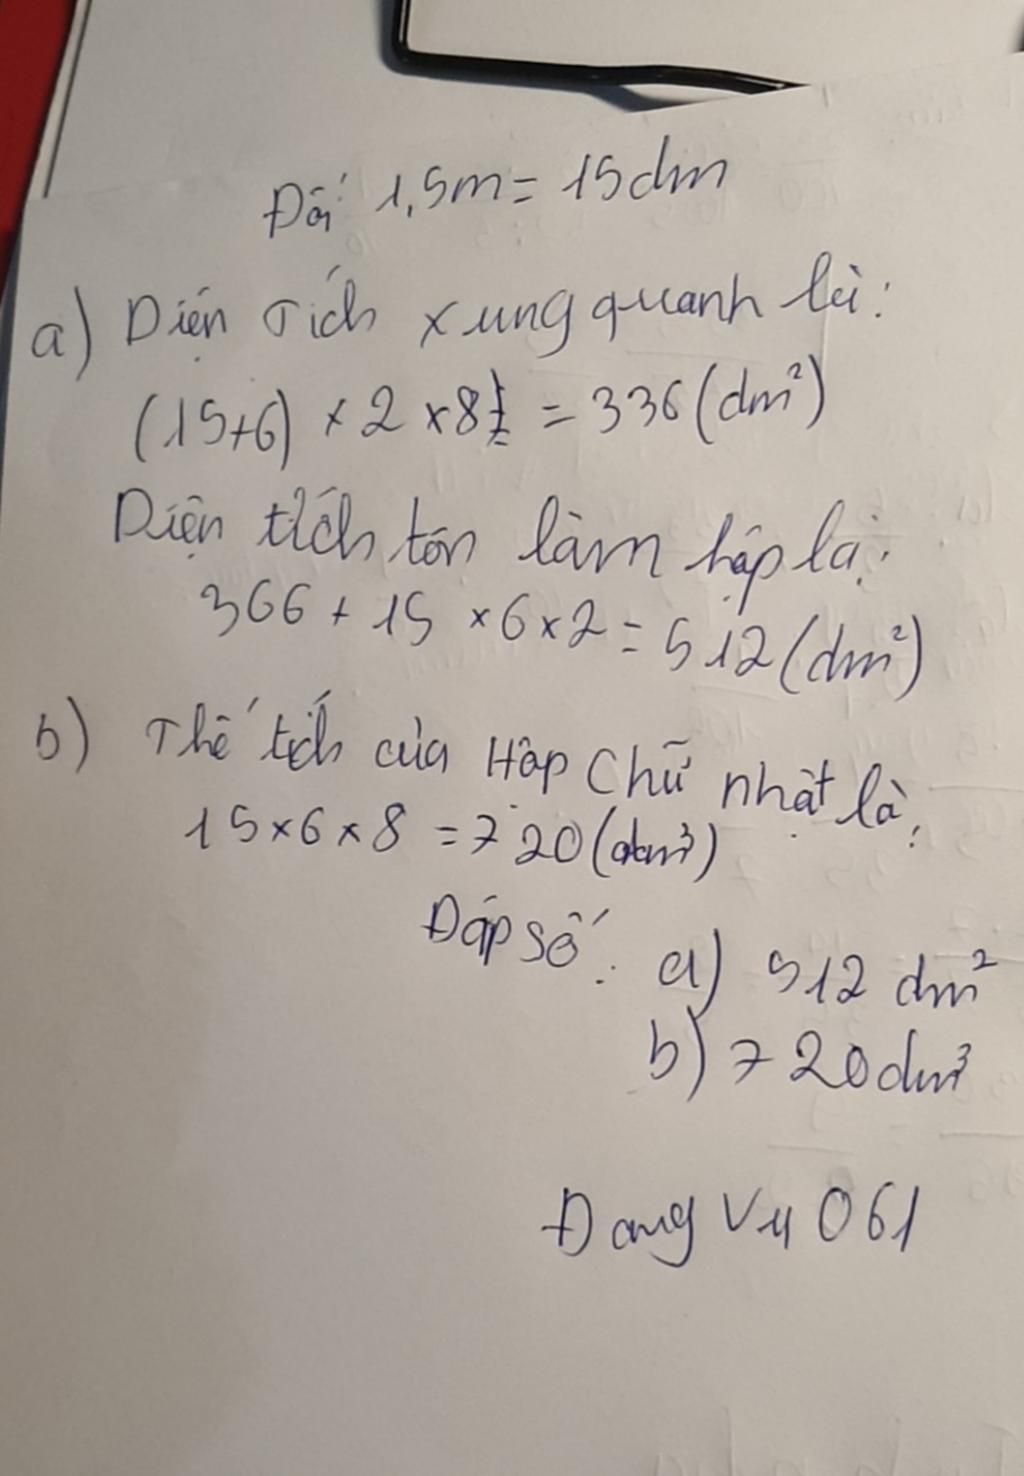 Đổi 1,5m = 15dm
a) Diện tích xung quanh là:
(15+6) × 2 × 8 = 336 (dm²)
Diện tích tôn làm hộp là:
366 + 15 × 6 × 2 = 512 (dm²)
b) Thể tích của Hộp Chữ nhật là:
15 × 6 × 8 = 720 (dm³)
Đáp số: a) 512 dm²
b) 720 dm³
Đang Vu 061